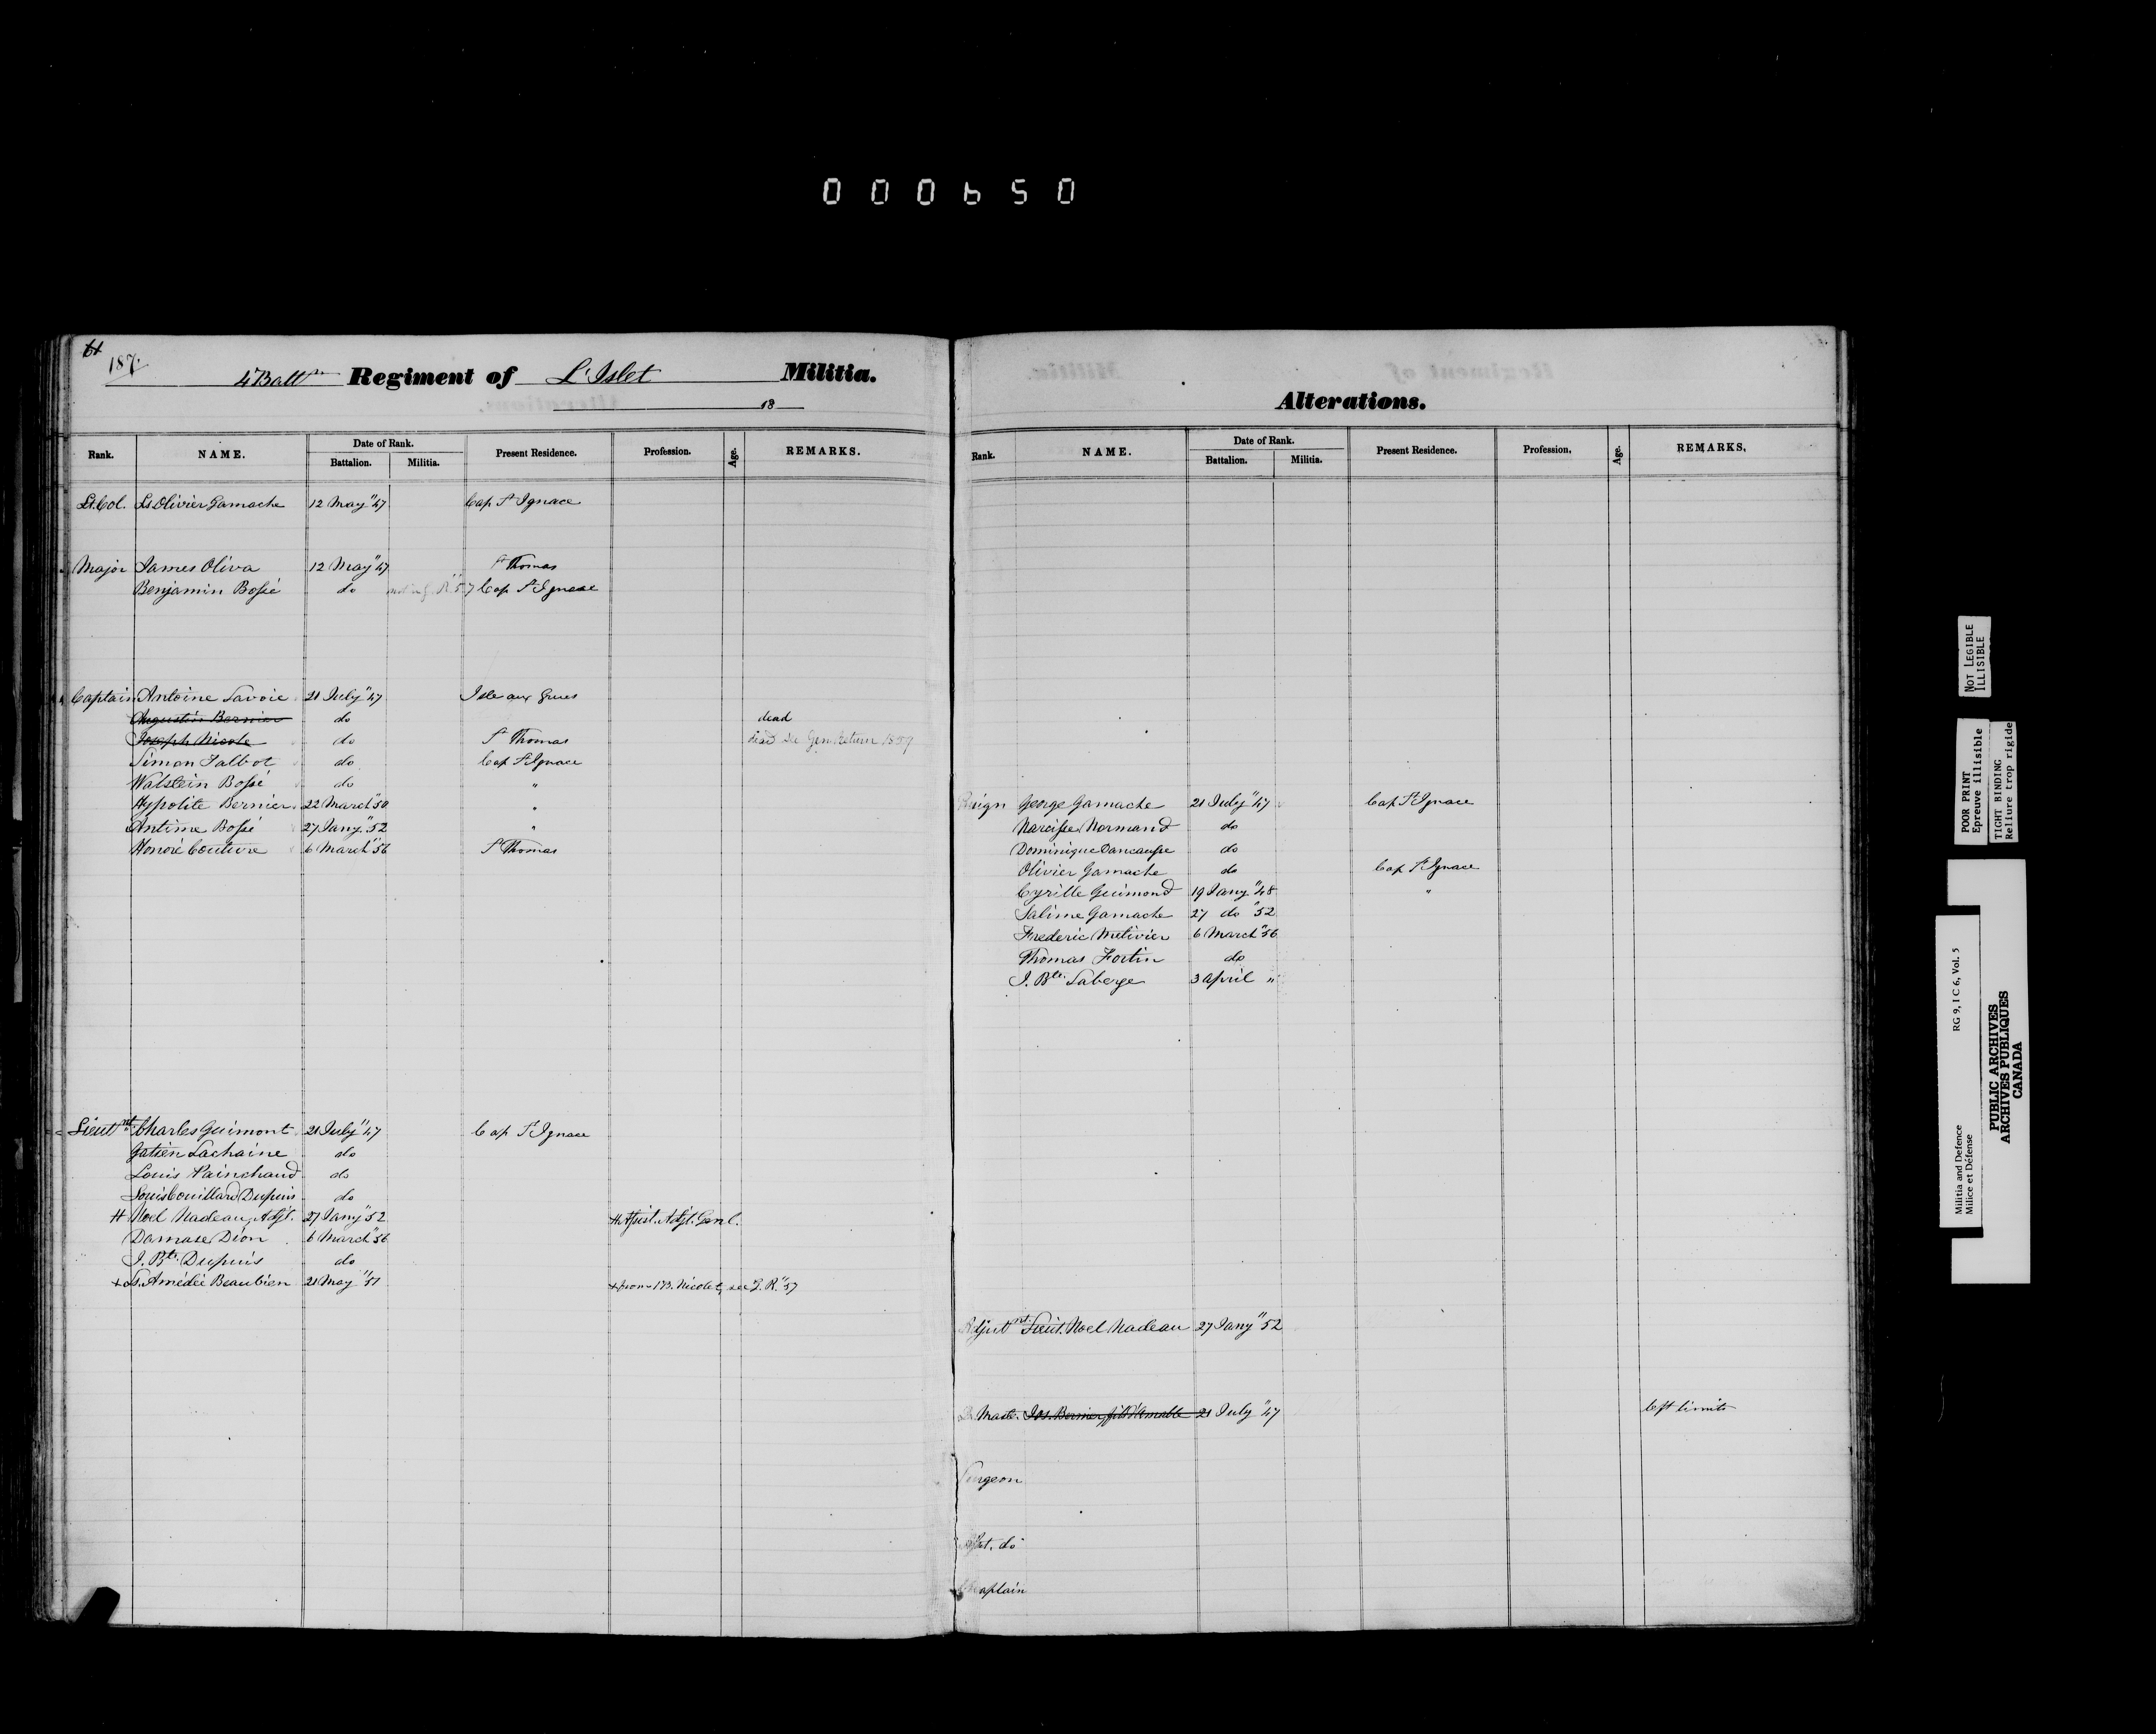 000650
61
187.
4 Battn Regiment of L'Islet Militia.
18
Rank. NAME. Date of Rank. Battalion. Militia. Present Residence. Profession. Age. REMARKS.
Lt. Col. Ls Olivier Gamache 12 May "47 Cap St Ignace
Major James Oliva 12 May "47 St Thomas
Benjamin Bossé do not in G. R. "57 Cap St Ignace
Captain Antoine Lavoie 21 July "47 Isle aux Grues
Augustin Bernier do dead
Joseph Nicole do St Thomas dead See Gen. Return 1859
Simon Talbot do Cap St Ignace
Walstein Bossé do "
Hypolite Bernier 22 March "50 "
Antime Bossé 27 Jany. "52 "
Honoré Couture 6 March "56 St Thomas
Lieutnt. Charles Guimont 21 July "47 Cap St Ignace
Gatien Lachaine do
Louis Painchaud do
Louis Couillard Dupuis do
# Noel Nadeau, Adjt. 27 Jany "52 # Assist. Adjt. Genl.
Damase Dion 6 March "56
J. Bte. Dupuis do
+ Ls. Amédée Beaubien 21 May "51 + from 1 B. Nicolet, see G. R. "57
Alterations.
Rank. NAME. Date of Rank. Battalion. Militia. Present Residence. Profession. Age. REMARKS.
Ensign George Gamache 21 July "47 Cap St Ignace
Narcisse Normand do
Dominique Dancausse do
Olivier Gamache do Cap St Ignace
Cyrille Guimond 19 Jany "48 "
Salime Gamache 27 do "52
Frederic Metivier 6 March "56
Thomas Fortin do
J. Bte. Laberge 3 April "
Adjutnt. Lieut. Noel Nadeau 27 Jany "52
Qr. Mastr. Jos. Bernier, fils d'Amable 21 July "47 left limits
Surgeon
Asst. do
Chaplain
NOT LEGIBLE
ILLISIBLE
POOR PRINT
Epreuve illisible
TIGHT BINDING
Reliure trop rigide
Militia and Defence RG 9, I C 6, Vol. 5
Milice et Défense
PUBLIC ARCHIVES
ARCHIVES PUBLIQUES
CANADA